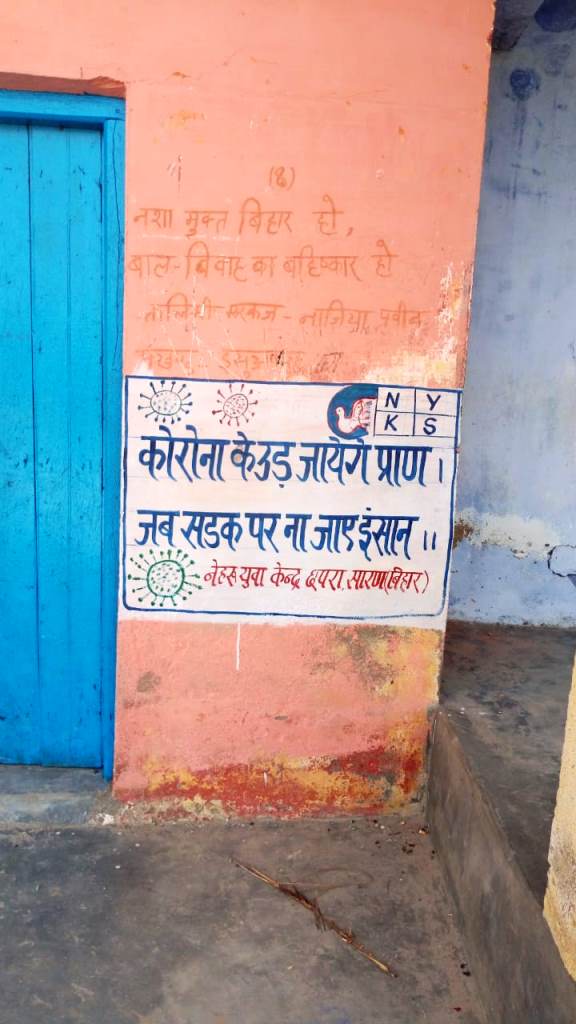 (8)
नशा मुक्त बिहार हो,
बाल-बिवाह का बहिष्कार हो
तालिमी-मरकज-नाजिया प्रवीन
N Y
K S
कोरोना के उड़ जायेगें प्राण।
जब सडक पर ना जाए इंसान।।
नेहरू युवा केन्द्र छपरा, सारण(बिहार)